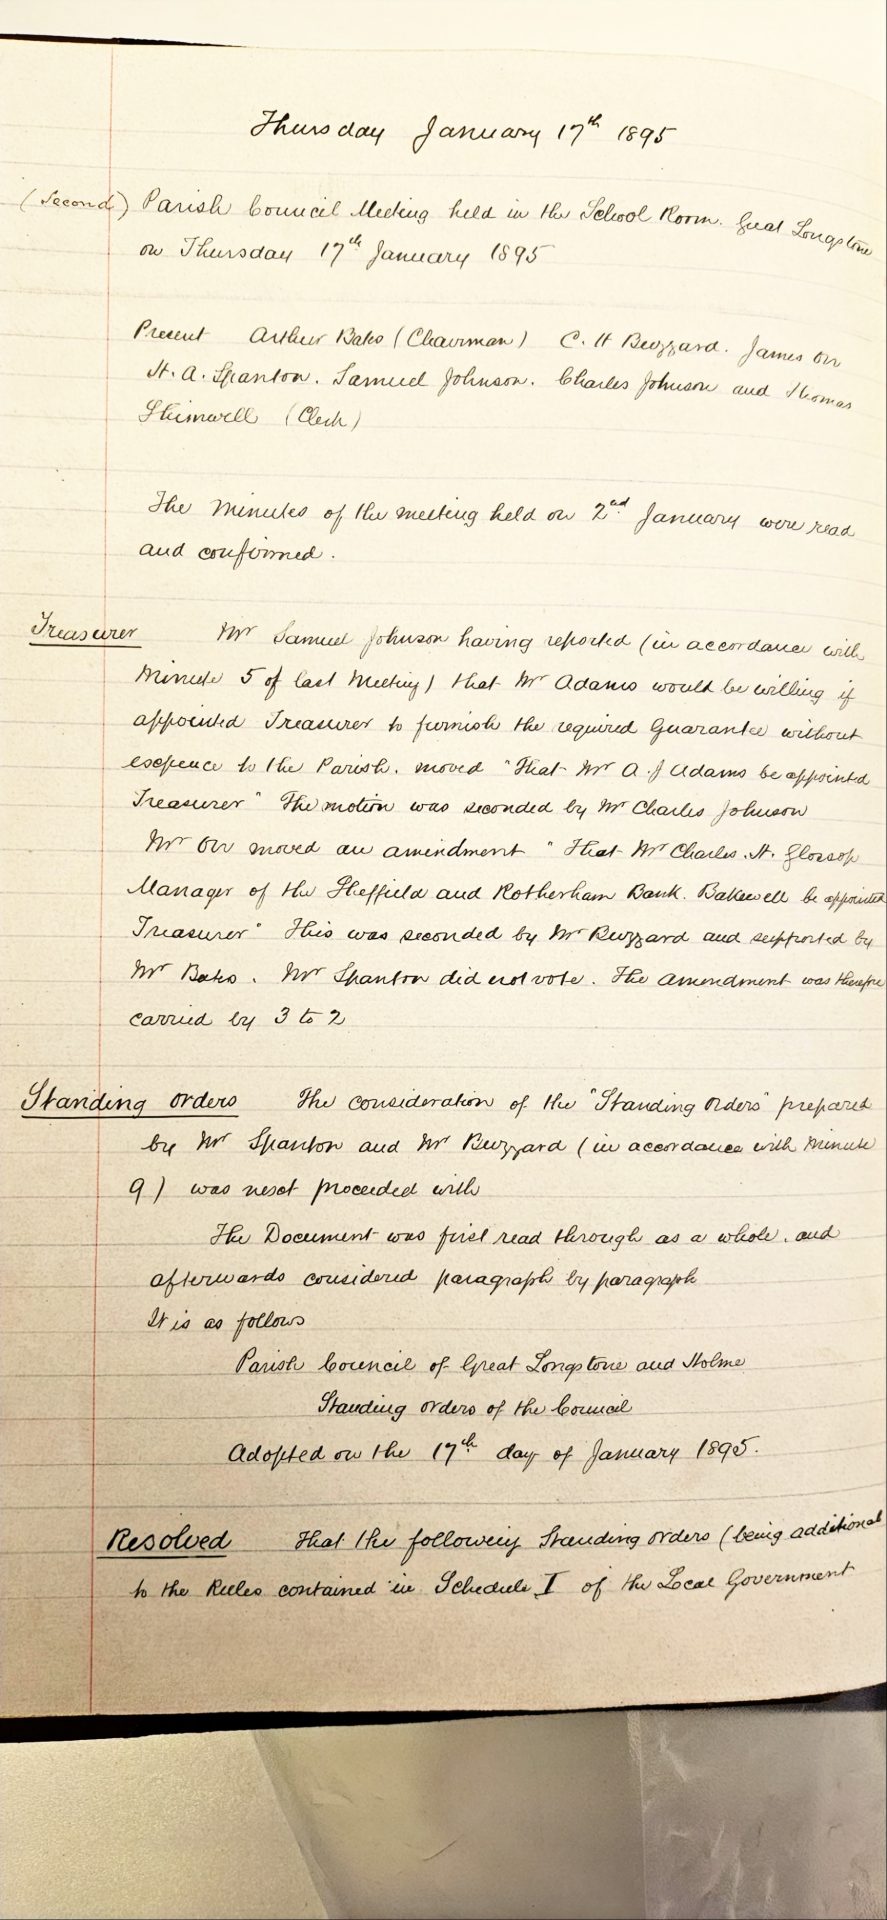 Thursday January 17th 1895
(Second) Parish Council Meeting held in the School Room. Great Longstone
on Thursday 17th January 1895
Present Arthur Bates (Chairman) C. H Buzzard. James Orr
H. A. Spanton. Samuel Johnson. Charles Johnson and Thomas
Shimwell (Clerk)
The Minutes of the meeting held on 2nd January were read
and confirmed.
Treasurer Mr Samuel Johnson having reported (in accordance with
Minute 5 of last Meeting) that Mr Adams would be willing if
appointed Treasurer to furnish the required Guarantee without
expence to the Parish. moved "That Mr A. J Adams be appointed
Treasurer" The motion was seconded by Mr Charles Johnson
Mr Orr moved an amendment "That Mr Charles. H. Glossop
Manager of the Sheffield and Rotherham Bank. Bakewell be appointed
Treasurer" This was seconded by Mr Buzzard and supported by
Mr Bates. Mr Spanton did not vote. The amendment was therefore
carried by 3 to 2
Standing orders The consideration of the "Standing Orders" prepared
by Mr Spanton and Mr Buzzard (in accordance with Minute
9) was next proceeded with
The Document was first read through as a whole. and
afterwards considered paragraph by paragraph
It is as follows
Parish Council of Great Longstone and Holme
Standing orders of the Council
Adopted on the 17th day of January 1895.
Resolved That the following Standing orders (being additional
to the Rules contained in Schedule I of the Local Government